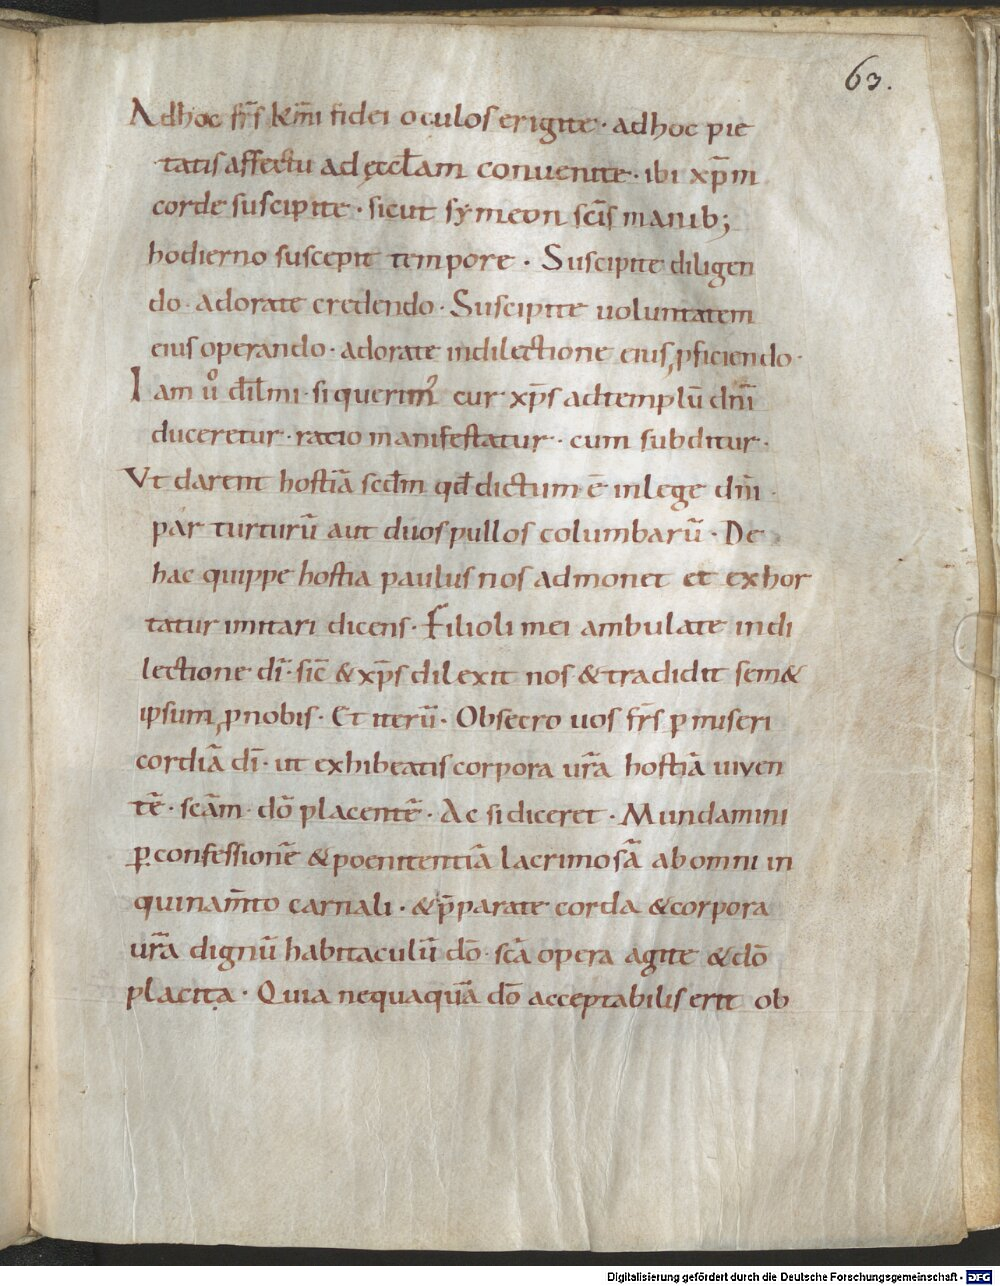 63.
Adhoc fr̄s km̄i fidei oculos erigite · adhoc pie
tatis affectu ad ęccl̄am conuenite · ibi xp̄m
corde suscipite · sicut sẏmeon scīs manib;
hodierno suscepit tempore · Suscipite diligen
do · adorate credendo · Suscipite uoluntatem
eius operando · adorate indilectione eius ꝓficiendo ·
Iam ůo dil̄mi · si querimꝰ cur xp̄s adtemplū dn̄i
duceretur · ratio manifestatur · cum subditur ·
Vt darent hostiā scd̄m qd̄ dictum ē inlege dn̄i ·
par turturū aut duos pullos columbarū · De
hac quippe hostia paulus nos admonet et exhor
tatur imitari dicens · Filioli mei ambulate indi
lectione dī · sic̄ & xp̄s dilexit nos & tradidit sem&
ipsum ꝓnobis · Et iterū · Obsecro uos fr̄s ꝑ miseri
cordiā dī · ut exhibeatis corpora ur̄a hostiā uiven
tē · scām · dō placentē · Ac si diceret · Mundamini
ꝑ confessionē & poenitentiā lacrimosā ab omni in
quinam̄to carnali · & p̄parate corda & corpora
ur̄a dignū habitaculū dō · scā opera agite & dō
placita · Quia nequaquā dō acceptabilis erit ob
Digitalisierung gefördert durch die Deutsche Forschungsgemeinschaft - DFG